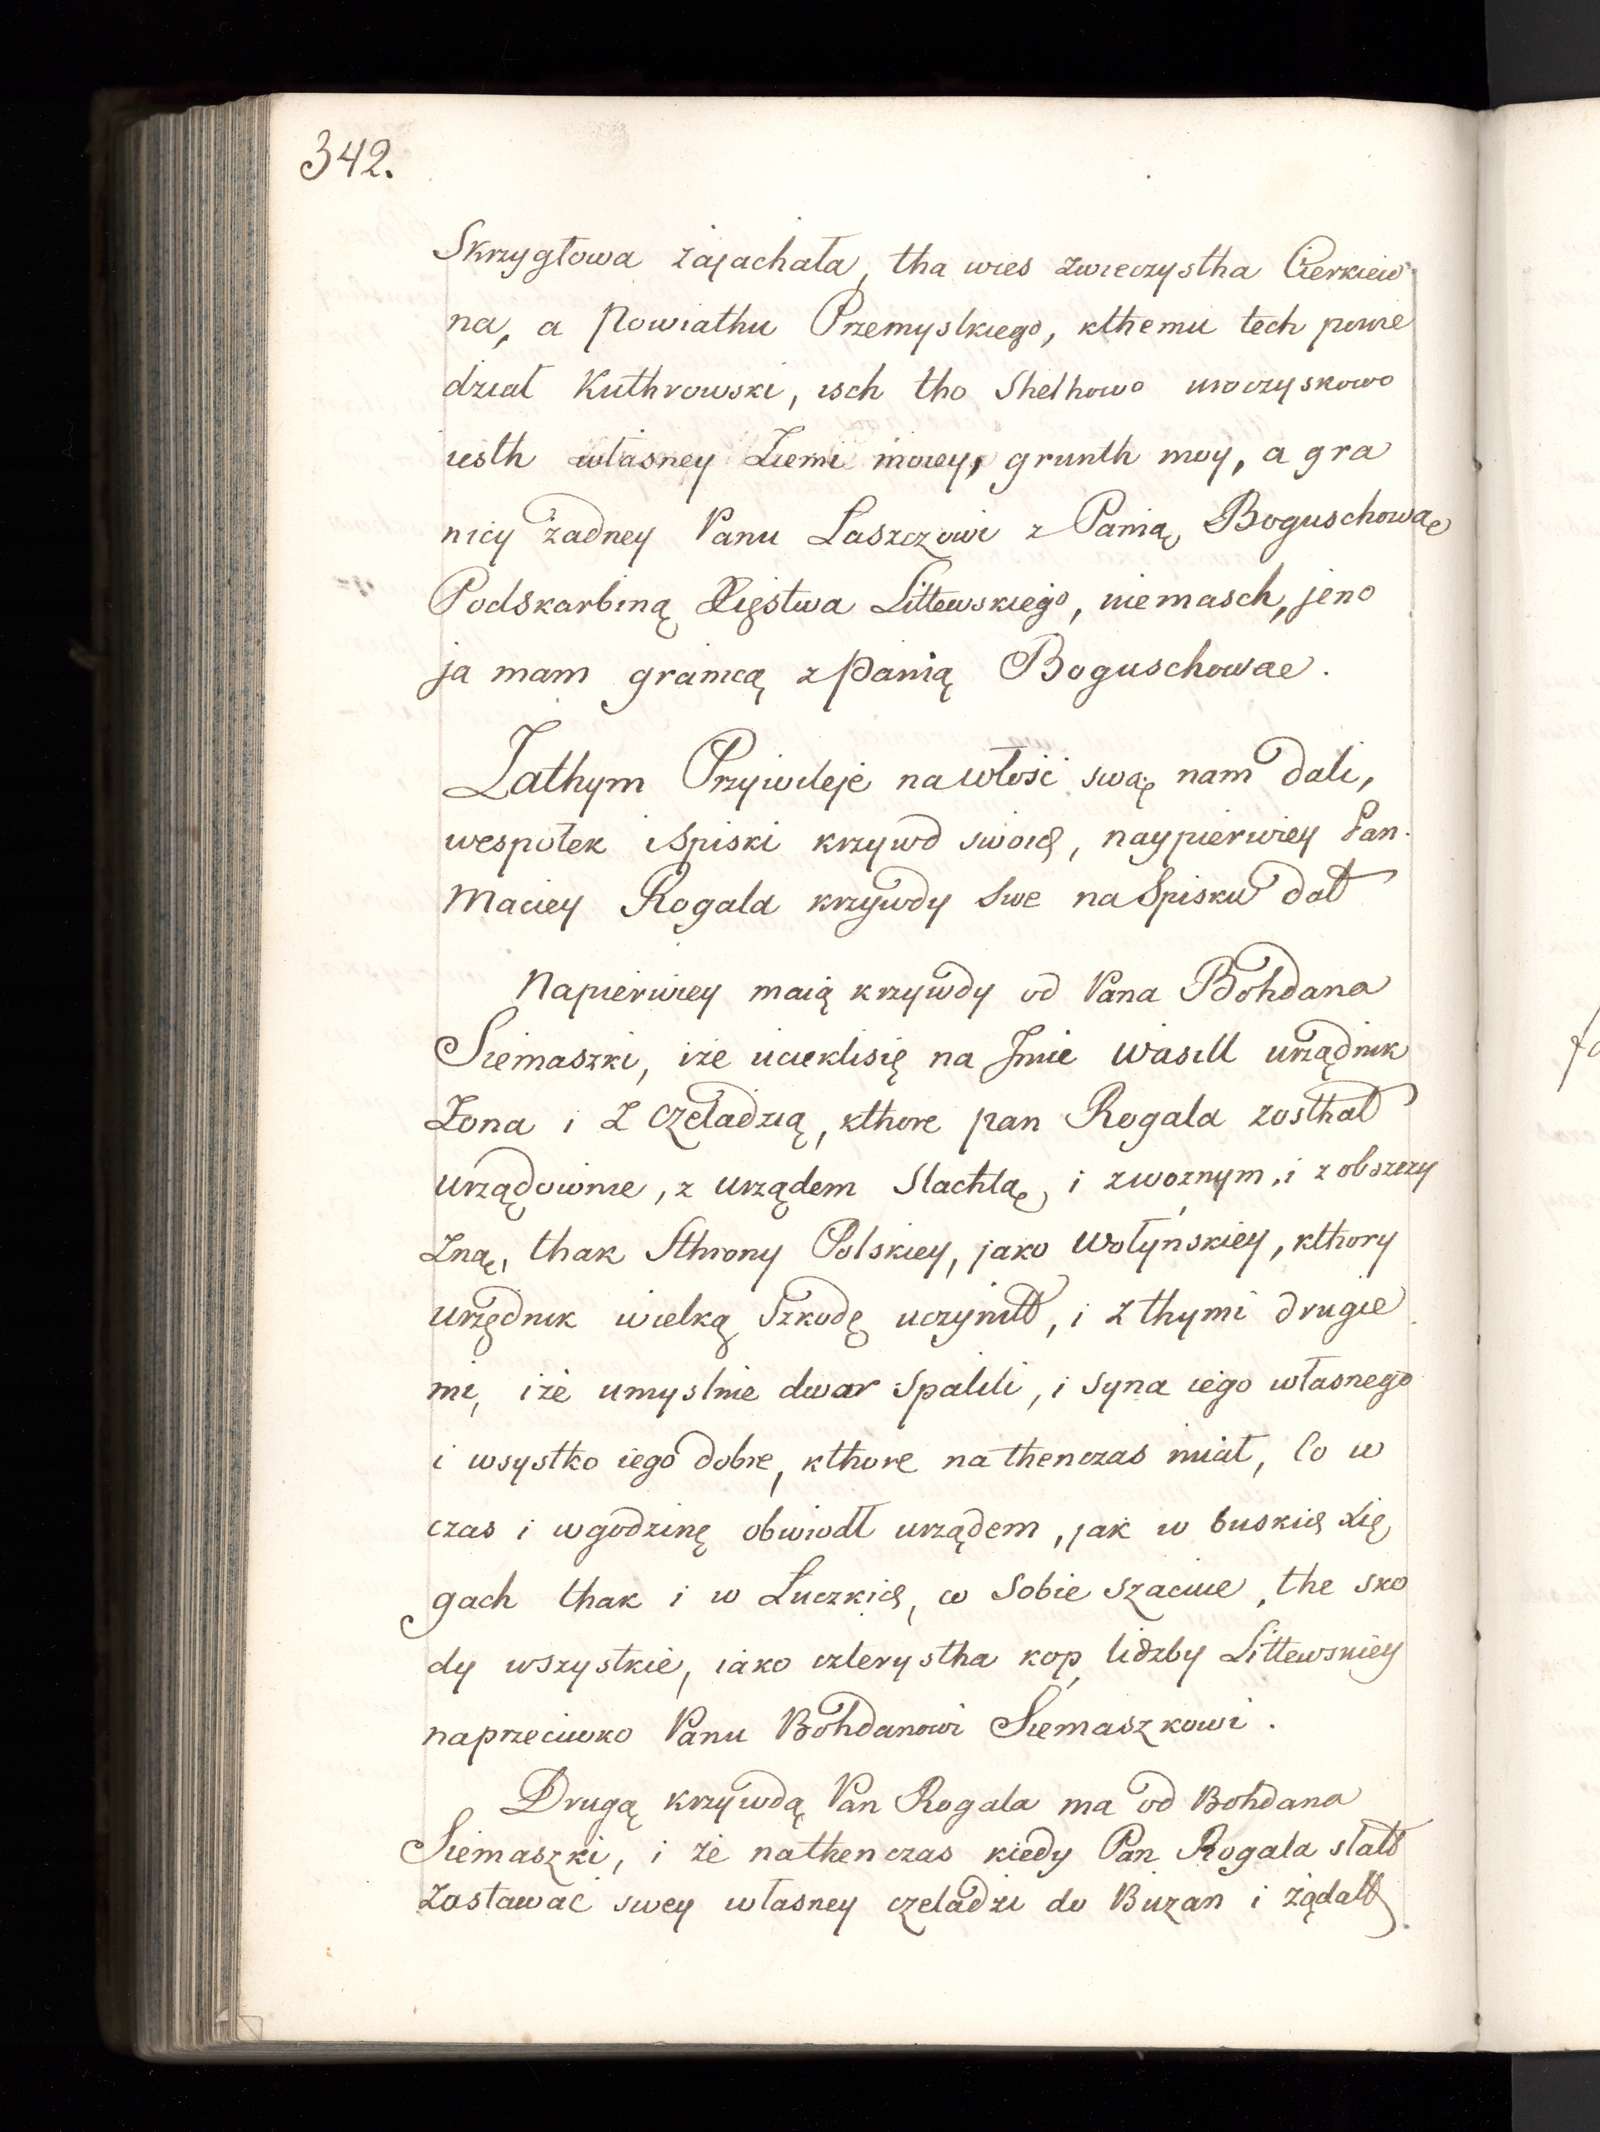 342.
Skrzygłowa zajachała, tha wies zwieczystha Cierkiew
na, a Powiathu Przemyslkiego, kthemu tech powie
dział Kuthrowski, isch tho Shelhowo uroczyskowo
iesth własney Ziemi mowey, grunth moy, a gra
nicy żadney Panu Laszczowi z Panią Boguschową
Podskarbiną Xięstwa Littewskiego, niemasch, jeno
ja mam granicą z Panią Boguschowae.
Zathym Przyiwileje na włość swą nam dali,
wespołek i Spiski krzywd swoich, naypierwiey Pan
Maciey Rogala krzywdy Swe na Spisku dał
Napierwiey maią krzywdy od Pana Bohdana
Siemaszki, iże uciekli się na Imie Wasill urządnik
Zona i Z czeladzią, kthore pan Rogala zosthał
urządownie, z urządem Slachtą, i zwoznym, i z obszczy
Zną, thak Sthrony Polskiey, jako Wołyńskiey, kthory
urzędnik wielką Szkodę uczynił, i z thymi drugie
mi, iże umyslnie dwar spalili, i syna iego własnego
i wsystko iego dobre, kthore na thenczas miał, Co w
czas i w godzinę obwiodł urządem, jak w buskich xię
gach thak i w Luczkich, co Sobie szacuie, the sko
dy wszystkie, iako czterystha kop lidzby Littewskiey
naprzeciwko Panu Bohdanowi Siemaszkowi.
Drugą krzywdą Pan Rogala ma od Bohdana
Siemaszki, i że nathenczas kiedy Pan Rogala słał
Zostawać swey własney czeladzi do Buzan i żądał